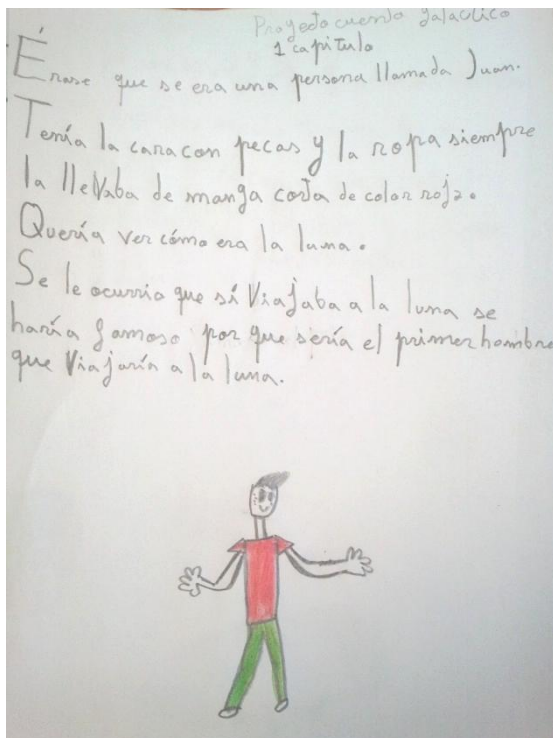 Proyecto cuento galactico
1 capitulo
Érase que se era una persona llamada Juan.
Tenía la cara con pecas y la ropa siempre
la llevaba de manga corta de color rojo.
Quería ver cómo era la luna.
Se le ocurria que sí viajaba a la luna se
haría famoso por que sería el primer hombre
que viajaría a la luna.